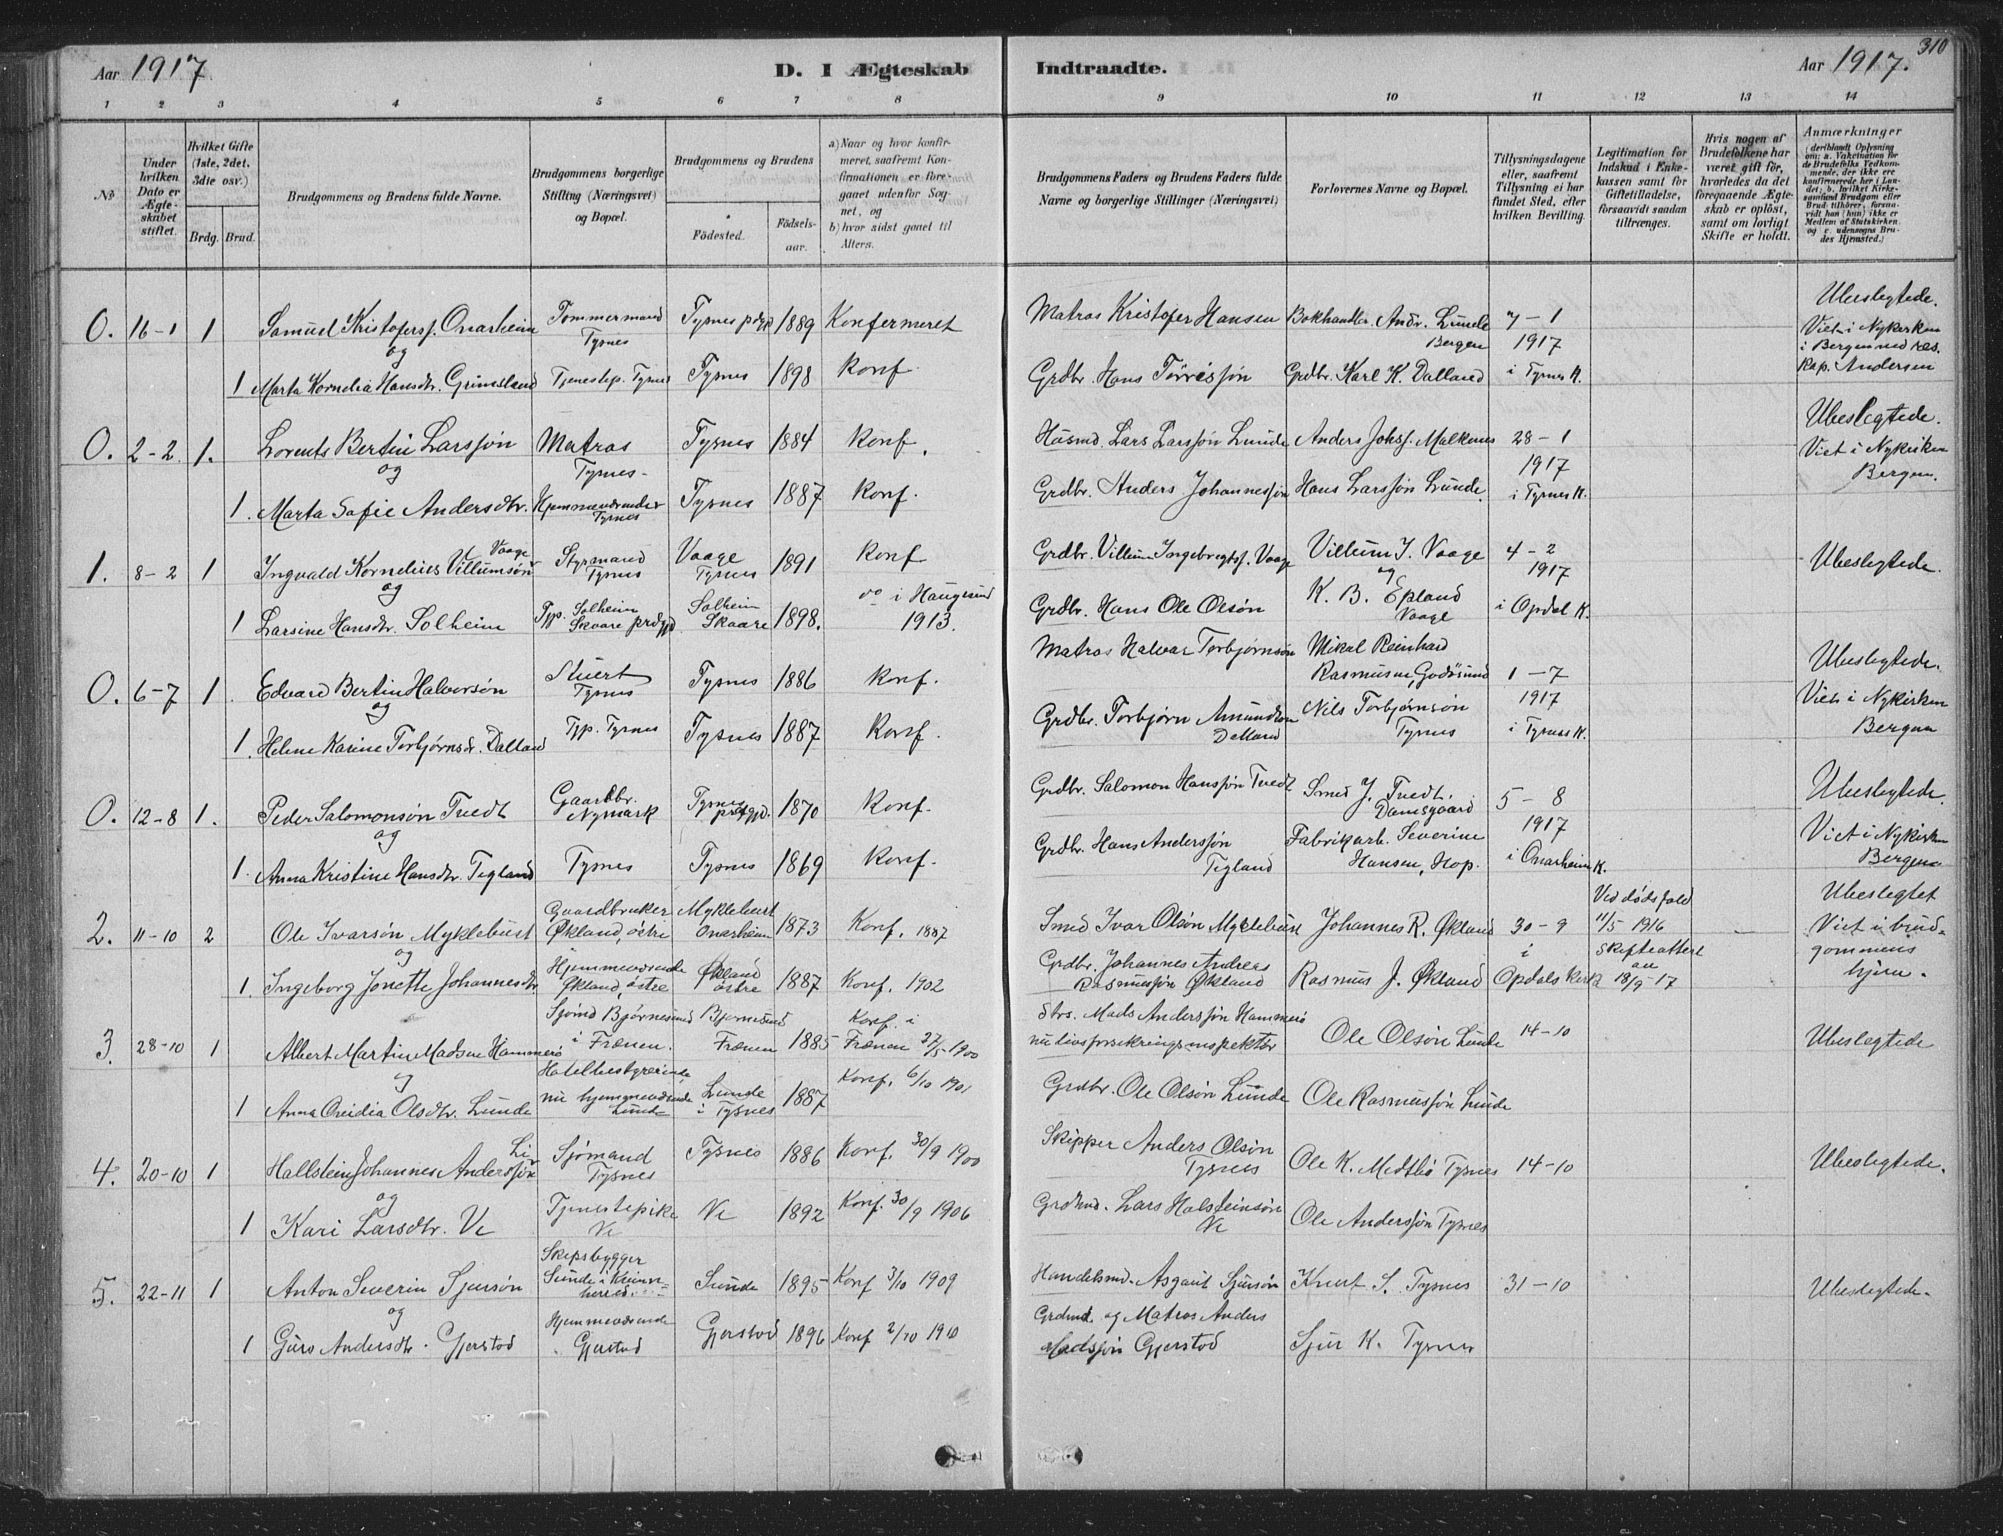 Aar 1917
D. I Ægteskab
Indtraadte.
Aar 1917.
310
1 2 3 4 5 6 7 8 9 10 11 12 13 14
№
Under hvilken Dato er Ægteskabet stiftet.
Hvilket Gifte (1ste, 2det, 3die osv.)
Brdg. Brud.
Brudgommens og Brudens fulde Navne.
Brudgommens borgerlige Stilling (Næringsvei) og Bopæl.
Brudgommens og Brudens
Födested.
Födselsaar.
a) Naar og hvor konfirmeret, saafremt Konfirmationen er foregaaet udenfor Sognet, og
b) hvor sidst gaaet til Alters.
Brudgommens Faders og Brudens Faders fulde Navne og borgerlige Stillinger (Næringsvei)
Forlovernes Navne og Bopæl.
Tillysningsdagene eller, saafremt Tillysning ei har fundet Sted, efter hvilken Bevilling.
Legitimation for Indskud i Enkekassen samt for Giftetilladelse, forsaavidt saadan tiltrænges.
Hvis nogen af Brudefolkene har været gift før, hvorledes da det foregaaende Ægteskab er opløst, samt om lovligt Skifte er holdt.
Anmærkninger (deriblandt Oplysning om: a. Vakcination for de Brudefolks Vedkommende, der ikke ere konfirmerede her i Landet; b. hvilket Kirkesamfund Brudgom eller Brud tilhører, forsaavidt han (hun) ikke er Medlem af Statskirken og c. udensogns Brudes Hjemsted.)
0. 16-1 1 Samuel Kristofersj. Onarheim Tømmermand Tysnes Tysnes prdgj 1889 Konfermeret Matros Kristofer Hansen Bokhandler Andr. Lunde Bergen 7-1 1917 Ubeslegtede. Viet i Nykirken i Bergen med res. Kap. Andersen
og
1 Marta Kornelia Hansdtr. Grimsland Tjenestep. Tysnes Tysnes 1898 Konf. Grdbr. Hans Tørrisjøn Grdbr. Karl K. Dalland i Tysnes K.
0. 2-2 1. Lorents Bertin Larssjøn Matros Tysnes Tysnes 1884 Konf. Husmd. Lars Larssjøn Lunde Anders Johsj. Malkenes 28-1 1917 Ubeslegtede. Viet i Nykirken Bergen.
og
1. Marta Sofie Andersdtr. Hjemmeværende Tysnes Tysnes 1887 Konf. Grdbr. Anders Johannessjøn Hans Larssjøn Lunde. i Tysnes K.
1. 8-2 1 Ingvald Kornelius Villumsøn Vaage Styrmand Tysnes Vaage Tysnes 1891 Konf Grdbr. Villum Ingebregtsj. Vaage Villum J. Vaage 4-2 1917 Ubeslegtede.
og og
1 Larsine Hansdtr. Solheim Tjp. Solheim Skaare prdgjd Solheim Skaare 1898. do i Haugesund 1913. Grdbr. Hans Ole Olsøn K. B. Epland Vaage i Opdal K.
0. 6-7 1. Edvard Bertin Halvorsøn Stuert Tysnes Tysnes 1886 Konf. Matros Halvar Torbjørnsøn Mikal Reinhard Rasmusen, Godøsund 1-7 1917 Ubeslegtede. Viet i Nykirken Bergen
og
1. Helene Karine Torbjørnsd. Dalland Tjp. Tysnes Tysnes 1887 Konf. Grdbr. Torbjørn Amundsen Dalland Nils Torbjørnsøn Tysnes i Tysnes K.
0. 12-8 1. Peder Salomonsøn Tvedt Gaardbr. Nymark Tysnes prdgjd. 1870 Konf. Grdbr. Salomon Hanssjøn Tvedt Smed J. Tvedt. Damsgaard 5-8 1917 Ubeslegtede. Viet i Nykirken Bergen
og
1. Anna Kristine Hansdtr. Tegland Tysnes Tysnes 1869 Konf. Grdbr. Hans Anderssjøn Tegland Fabrikarb. Severin Hansen, Hop. i Onarheim K.
2. 11-10 2 Ole Ivarsøn Myklebust Gaardbruker Økland, østre Myklebust Onarheim 1873 Konf. 1887 Smed Ivar Olsøn Myklebust Johannes R. Økland 30-9 Ved dødsfald 11/5 1916 Ubeslegtet Viet i brudgommens hjem.
og
1. Ingeborg Jonette Johannesdtr. Hjemmeværende Økland, østre Økland østre 1887 Konf. 1902 Grdbr. Johannes Andreas Rasmussjøn Økland Rasmus J. Økland i Opdals Kirke Skifteattest av 18/9-17
3. 28-10 1 Albert Martin Madsen Hammerø Sjømd Bjørnesund i Frænen. Bjørnesund Frænen 1885 Konf. i Frænen 27/5-1900 Sbrs. Mads Anderssjøn Hammerø nu livsforsikringsinspektør Ole Olsøn Lunde 14-10 Ubeslegtede
og
1 Anna Oridia Olsdtr. Lunde Hotelbestyrerinde, nu hjemmeværende Lunde Lunde i Tysnes 1887 Konf. 6/10 1901 Grdbr. Ole Olsøn Lunde Ole Rasmussjøn Lunde
4. 20-10 1 Hallstein Johannes Anderssjøn Li Sjømand Tysnes Tysnes 1886 Konf. 30/9 1900 Skipper Anders Olsøn Tysnes Ole K. Medtbø Tysnes 14-10 Ubeslegtede.
og
1 Kari Larsdtr. Ve Tjenestepike Ve Ve 1892 Konf. 30/9 1906 Grdmd. Lars Halsteinsøn Ve Ole Anderssjøn Tysnes
5. 22-11 1 Anton Severin Sjursøn Skipsbygger Sunde i Kvinnhered Sunde 1895 Konf 3/10 1909 Handelsmd. Asgaut Sjursøn Knut S. Tysnes 31-10 Ubeslegtede.
og
1 Guro Andersdtr. Gjerstad Hjemmeværende Gjerstad Gjerstad 1896 Konf 2/10 1910 Grdmd. og Matros Anders Madssjøn Gjerstad Sjur K. Tysnes